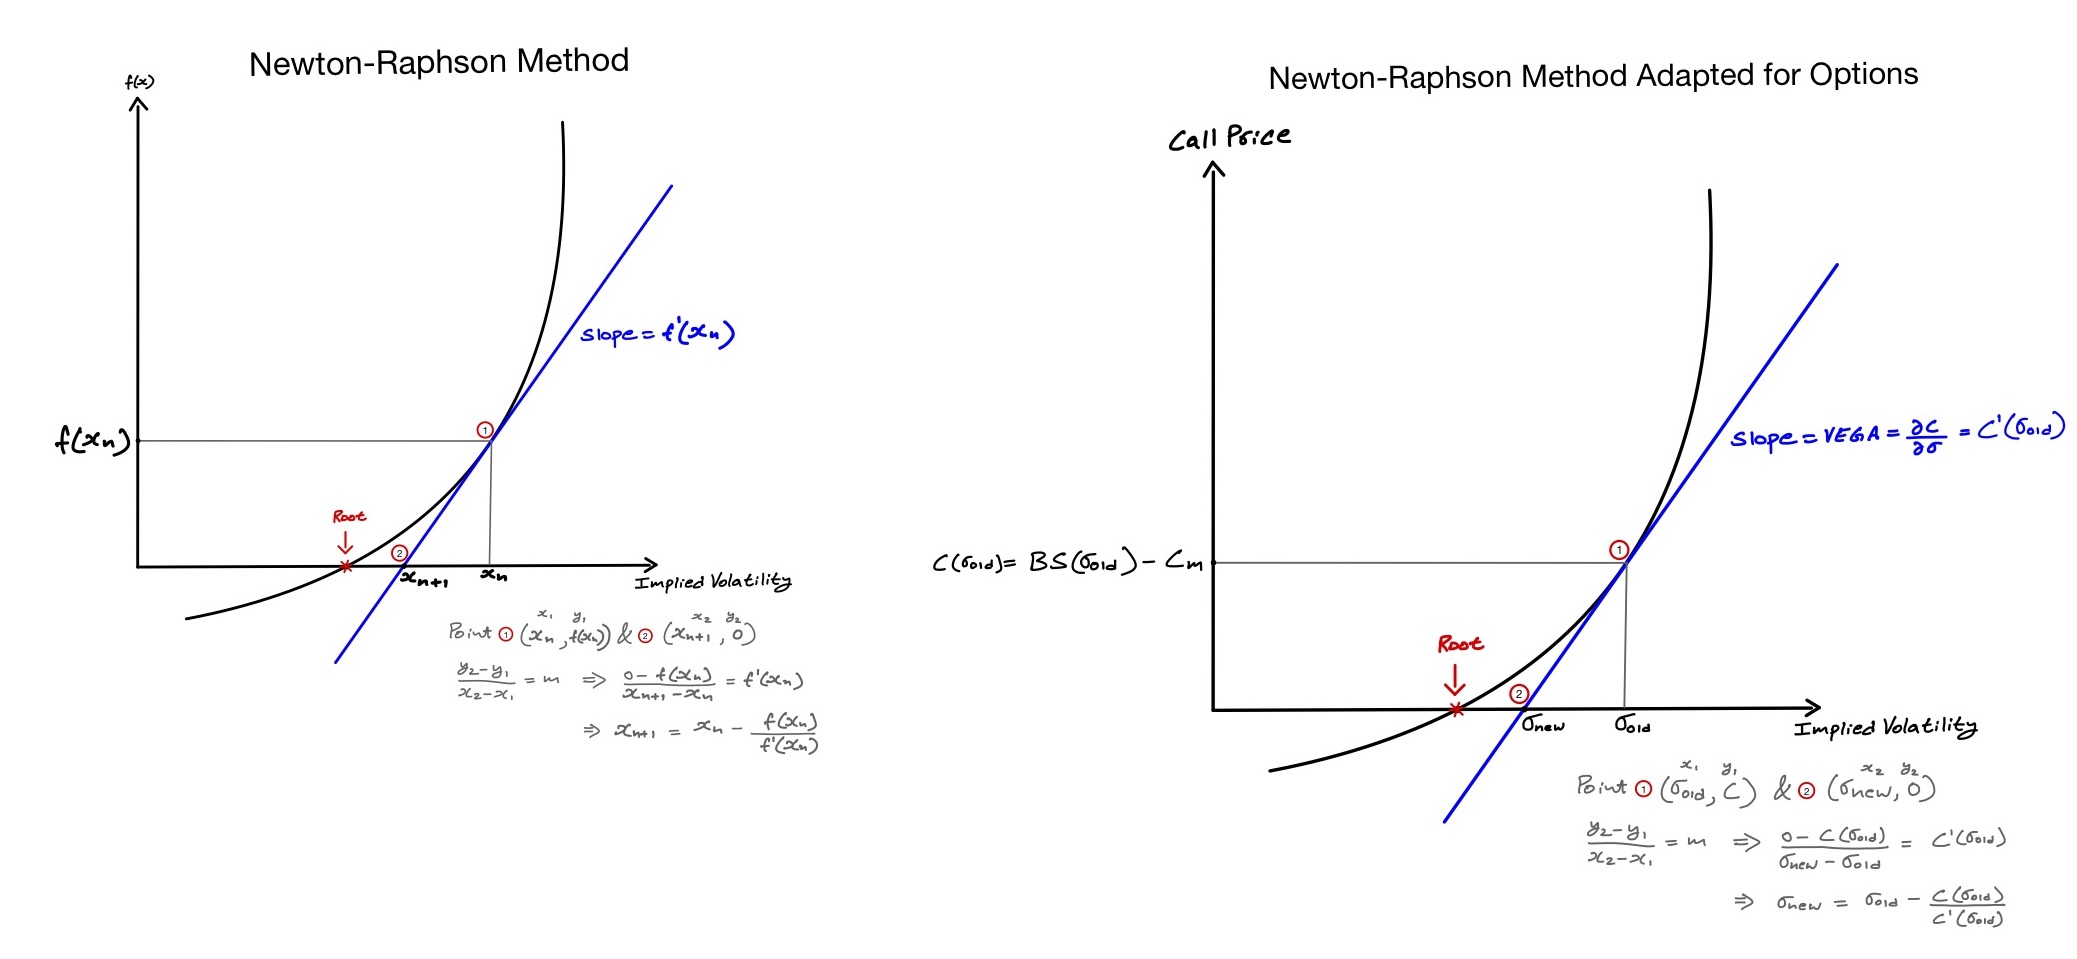 Newton-Raphson Method
f(x)
slope = f'(xn)
f(xn)
1
Root
2
xn+1
xn
Implied Volatility
x1 y1 x2 y2
Point 1 (xn, f(xn)) & 2 (xn+1, 0)
y2-y1/x2-x1 = m ⇒ 0-f(xn)/xn+1-xn = f'(xn)
⇒ xn+1 = xn - f(xn)/f'(xn)
Newton-Raphson Method Adapted for Options
Call Price
slope = VEGA = ∂C/∂σ = C'(σold)
1
C(σold) = BS(σold) - Cm
Root
2
σnew
σold
Implied Volatility
x1 y1 x2 y2
Point 1 (σold, C) & 2 (σnew, 0)
y2-y1/x2-x1 = m ⇒ 0-C(σold)/σnew-σold = C'(σold)
⇒ σnew = σold - C(σold)/C'(σold)